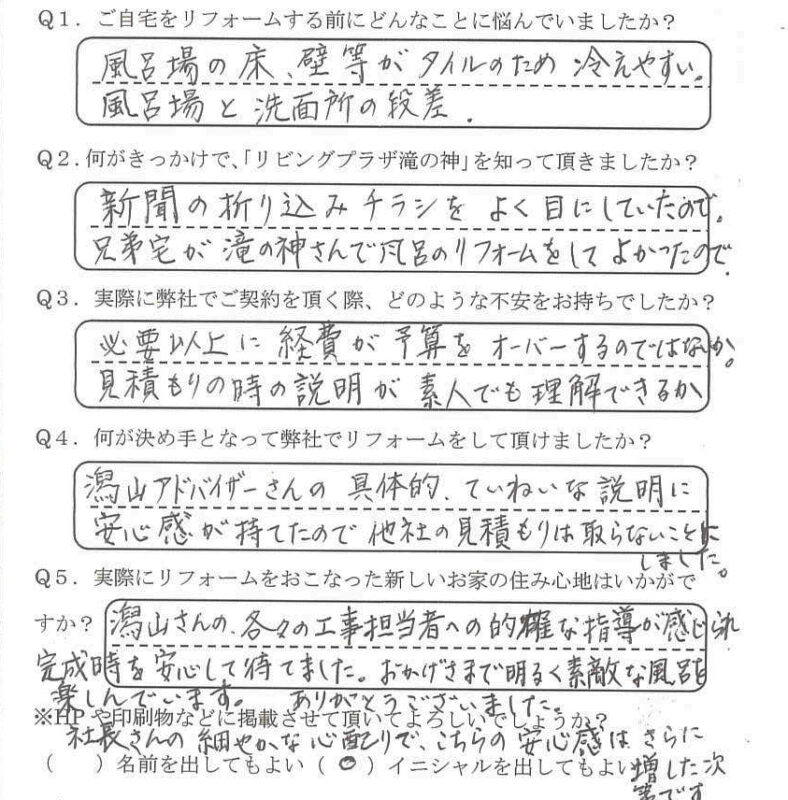 Q1．ご自宅をリフォームする前にどんなことに悩んでいましたか？
風呂場の床、壁等がタイルのため 冷えやすい。
風呂場と洗面所の段差．
Q2．何がきっかけで、「リビングプラザ滝の神」を知って頂きましたか？
新聞の折り込みチラシを よく目にしていたので。
兄弟宅が滝の神さんで風呂のリフォームをして よかったので．
Q3．実際に弊社でご契約を頂く際、どのような不安をお持ちでしたか？
必要以上に経費が予算を オーバーするのではないか。
見積もりの時の説明が 素人でも理解できるか
Q4．何が決め手となって弊社でリフォームをして頂けましたか？
潟山アドバイザーさんの 具体的、ていねいな説明に
安心感が持てたので他社の見積もりは取らないことに
しました。
Q5．実際にリフォームをおこなった新しいお家の住み心地はいかがで
すか？ 潟山さんの、各々の工事担当者への的確な指導が感じられ
完成時を安心して待てました。おかげさまで明るく素敵な風呂を
楽しんでいます。 ありがとうございました。
※HPや印刷物などに掲載させて頂いてよろしいでしょうか？
社長さんの細やかな心配りで、こちらの安心感はさらに
（ ）名前を出してもよい（ ○ ）イニシャルを出してもよい 増した次
第です